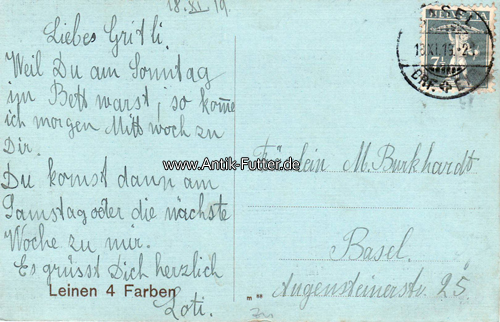 18.XI.19.
Liebes Gritli.
Weil Du am Sonntag
im Bett warst, so komme
ich morgen Mittwoch zu
Dir.
Du komst dann am
Samstag oder die nächste
Woche zu mir.
Es grüsst Dich herzlich
Loti.
Leinen 4 Farben
www.Antik-Futter.de
BASEL
18.XI.19.-23
BRF.
7½
Fräulein M. Burkhardt
Basel.
Augensteinerstr. 25